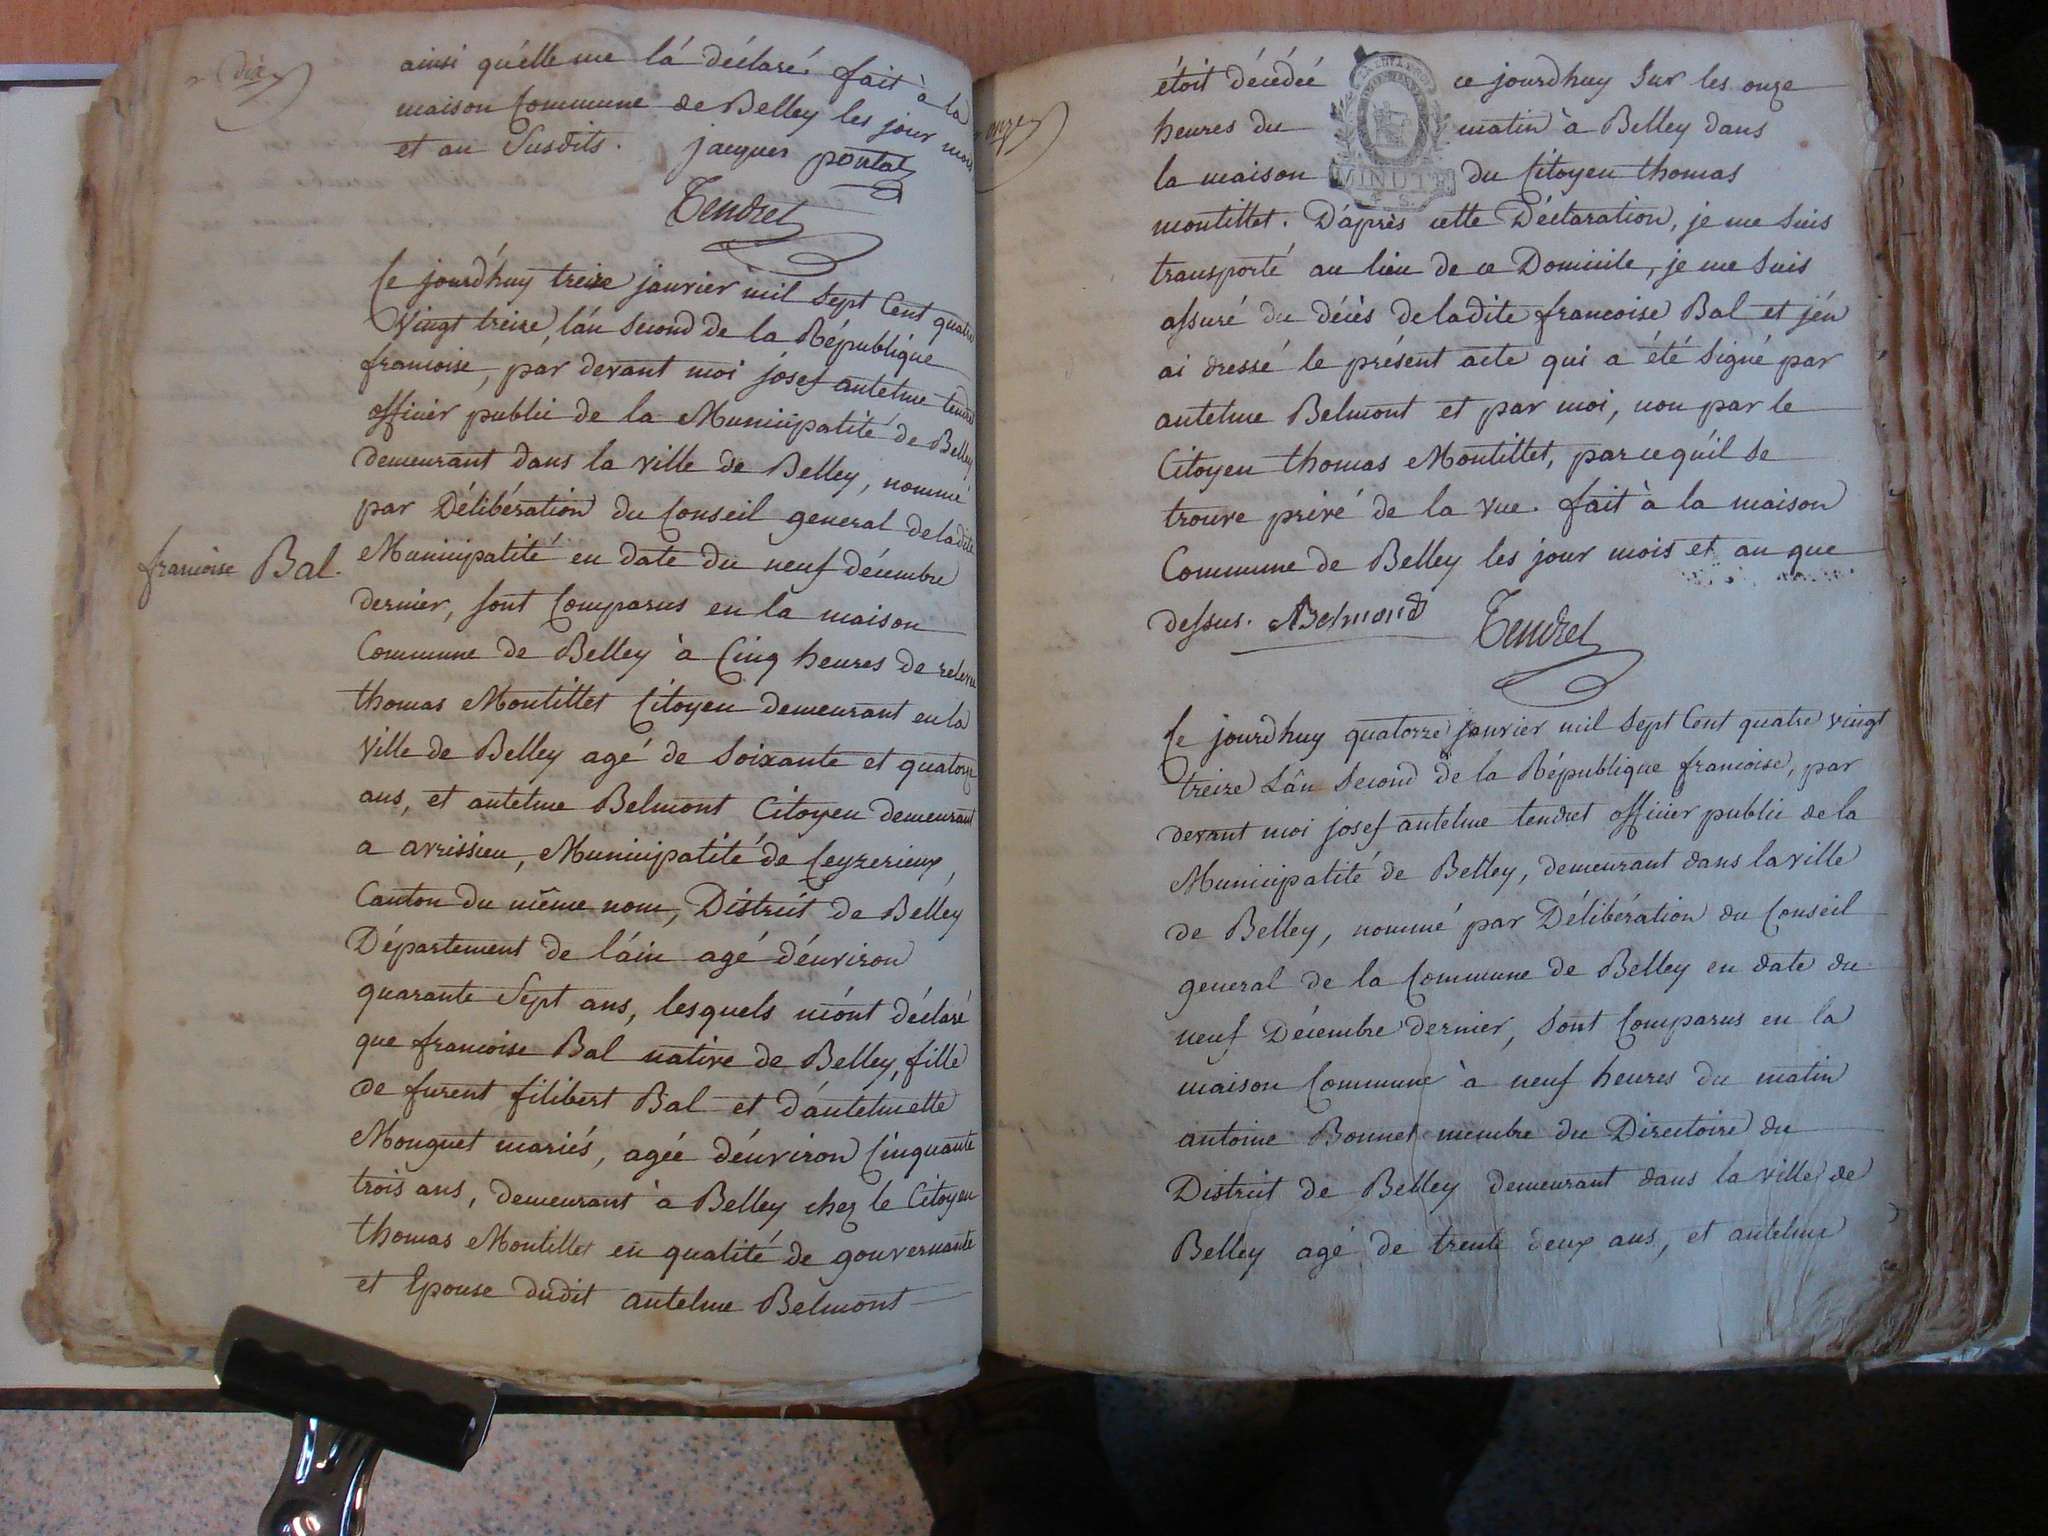 dix
ainsi qu'elle me lá déclaré. fait à la
maison Commune de Belley les jour mois
et an Susdits. jacques pontal
Tendret
Ce jourd'huy treize janvier mil Sept Cent quatre
Vingt treize, lán Second de la République
francoise, par devant moi josef antelme tendret
officier public de la Municipatité de Belley
demeurant dans la ville de Belley, nommé
par Délibération du Conseil general de ladite
francoise Bal.
Municipatité en date du neuf décembre
dernier, sont Comparus en la maison
Commune de Belley à Cinq heures de relevée
thomas Montillet Citoyen demeurant en la
Ville de Belley agé de Soixante et quatorze
ans, et antelme Belmont Citoyen demeurant
a avrissieu, Municipatité de Ceyzerieux,
Canton du même nom, District de Belley
Département de l'áin agé d'énviron
quarante Sept ans, lesquels m'ónt déclaré
que francoise Bal native de Belley, fille
de furent filibert Bal et d'ántelmette
Monguet mariés, agée d'énviron Cinquante
trois ans, demeurant à Belley chez le Citoyen
thomas Montillet en qualité de gouvernante
et Epouse dudit antelme Belmont
onze
étoit décédeé ce jourdhuy Sur les onze
heures du matin à Belley dans
la maison du Citoyen thomas
MINUTE
montillet. D'áprès cette Déclaration, je me Suis
transporté au lieu de ce Domicile, je me Suis
assuré du décès de ladite francoise Bal et j'én
ai dressé le présent acte qui a été Signé par
antelme Belmont et par moi, non par le
Citoyen thomas Montillet, parcequ'il Se
trouve privé de la vue. fait à la maison
Commune de Belley les jour mois et an que
dessus. Belmond Tendret
Ce jourdhuy quatorze janvier mil Sept Cent quatre vingt
treize Lán Second de la République francoise, par
devant moi josef antelme tendret officier public de la
Municipatité de Belley, demeurant dans la ville
de Belley, nommé par Délibération du Conseil
general de la Commune de Belley en date du
neuf Décembre dernier, Sont Comparus en la
maison Commune à neuf heures du matin
antoine Bonnet membre du Directoire du
District de Belley demeurant dans la ville de
Belley agé de trente deux ans, et antelme